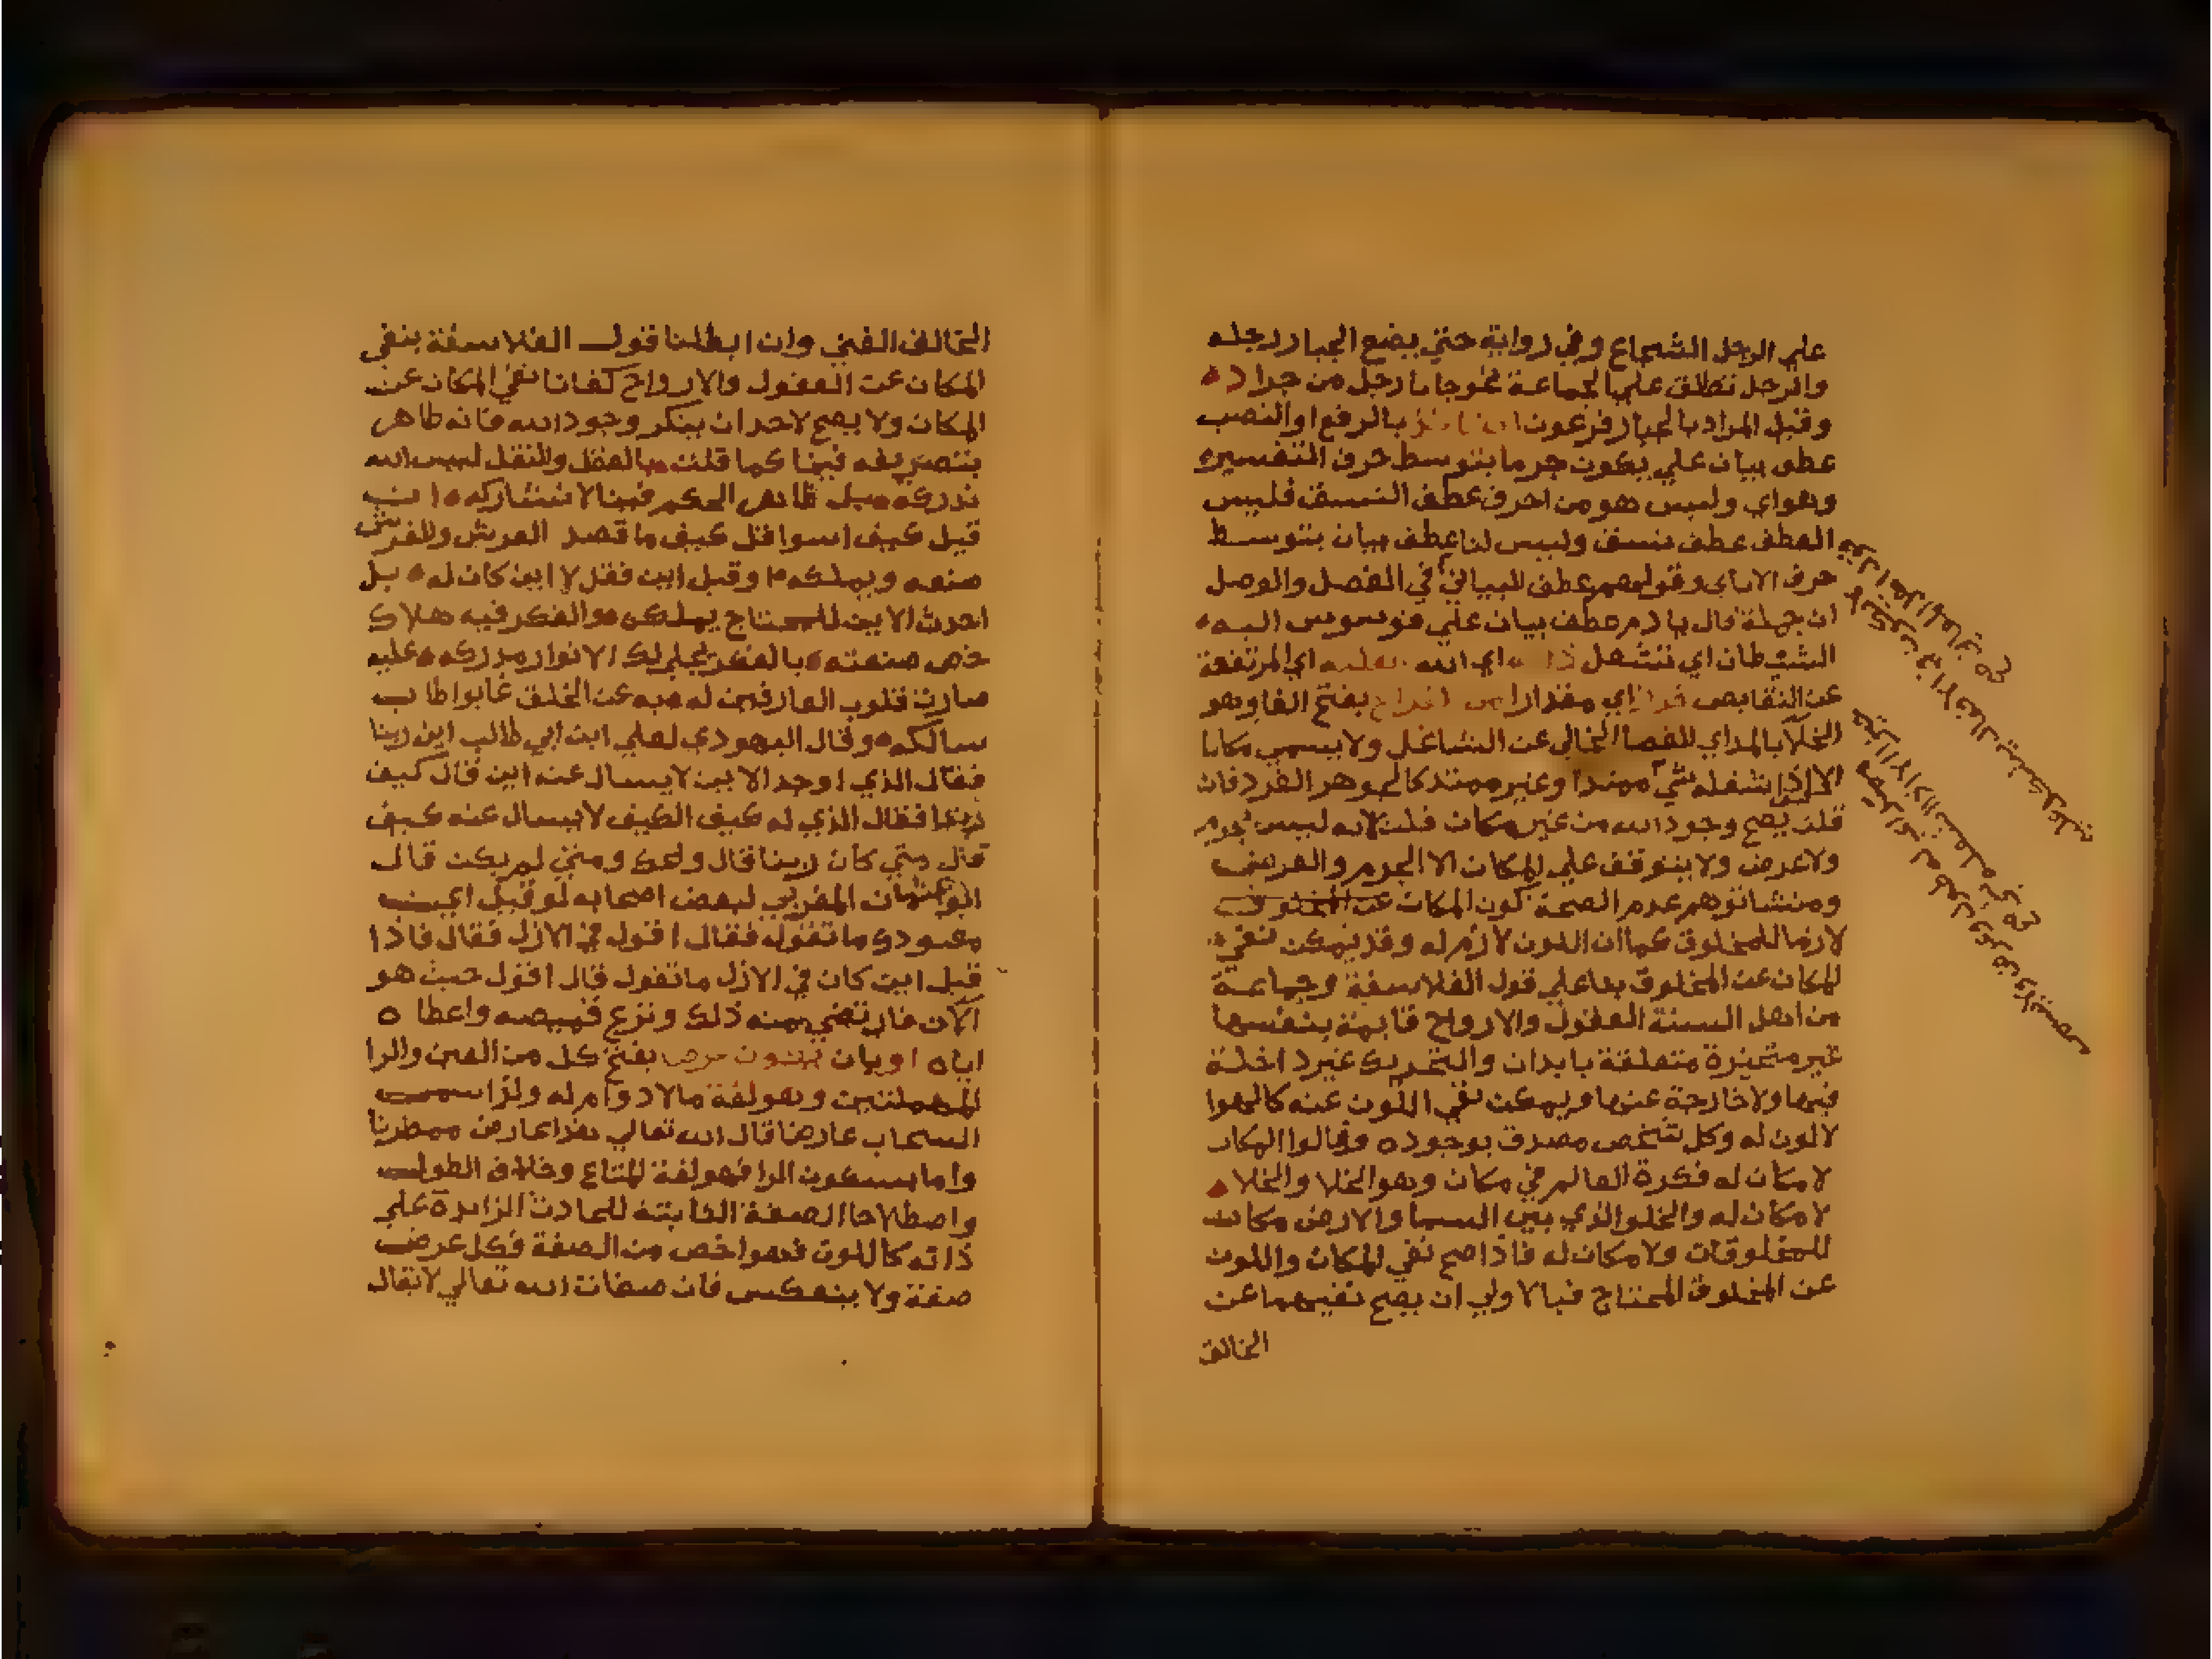 علي الرجل الشجاع وفي رواية حتي يضع الجبار رجله
والرجل تطلق علي الجماعة نحو جانا رجل من جراد
وقيل المراد بالجبار فرعون بالرفع او النصب
عطف بيان علي يكون جرما بتوسط حرف التفسير
وهو اي وليس هو من احرف عطف النسق فليس
العطف عطف نسق وليس لنا عطف بيان بتوسط
حرف الا باي وقولهم عطف البياني في الفصل والوصل
ان جملة قال يا ادم عطف بيان علي فوسوس اليه
الشيطان اي تشغل ذاته اي الله العلية اي المرتفعة
عن النقايص فراغا اي مقدارا من الفراغ بفتح الفا وهو
الخلا بالمد اي الفضا الخالي عن الشاغل ولا يسمي مكانا
الا اذا شغله شي ممتد او غير ممتد كالجوهر الفرد فان
قلت يصح وجود الله من غير مكان قلت لانه ليس بجرم
ولا عرض ولا يتوقف علي المكان الا الجرم والعرض
ومنشا توهم عدم الصحة كون المكان عن المخلوق
لازما للمخلوق كما ان اللون لازم له وقد يمكن نفي
المكان عن المخلوق بنا علي قول الفلاسفة وجماعة
من اهل السنة العقول والارواح قايمة بنفسها
غير متحيزة متعلقة بابدان والتحريك غير داخلة
فيها ولا خارجة عنها ويمكن نفي اللون عنه كالهوا
لا لون له وكل شخص مصدق بوجوده وقالوا المكان
لا مكان له فكرة العالم في مكان وهو الخلا والخلا
لا مكان له والخلو الذي بين السما والارض مكان
للمخلوقات ولا مكان له فاذا صح نفي المكان واللون
عن المخلوق المحتاج فبالاولي ان يصح نفيهما عن
الخالق
الخالق الغني وان ابطلنا قول الفلاسفة بنفي
المكان عن العقول والارواح كفانا نفي المكان عن
المكان ولا يصح لاحد ان ينكر وجود الله فانه ظاهر
بتصريفه فينا كما قلت بالعقل والنقل ليس الله
ندركه بل ظاهر الحكم فينا لا نشاركه ان
قيل كيف استوا فقل كيف ما قصد العرش والفرش
صنعه ويملكه وقيل اين فقل لا اين كان له بل
احدث الاين للمحتاج يهلكه والفكر فيه هلاك
خص صنعته بالفكر يجلي لك الانوار مدركه عليه
صارت قلوب العارفين له به عن الخلق غابوا طاب
سالكه وقال اليهودي لعلي ابن ابي طالب اين ربنا
فقال الذي اوجد الاين لا يسال عنه اين قال كيف
ربنا فقال الذي له كيف الكيف لا يسال عنه كيف
قال متي كان ربنا قال ولعك ومتي لم يكن قال
ابو عثمان المغربي لبعض اصحابه لو قيل اين
معبودك ما تقول فقال اقول في الازل فقال فاذا
قيل اين كان في الازل ما تقول قال اقول حيث هو
الان فارتضي منه ذلك ونزع قميصه واعطاه
اياه او بان يكون عرض بفتح كل من العين والرا
المهملتين وهو لغة ما لا دوام له ولذا سمي
السحاب عارضا قال الله تعالي هذا عارض ممطرنا
واما بسكون الرا فهو لغة المتاع وخلاف الطول
واصطلاحا الصفة الثابتة للحادث الزايدة علي
ذاته كاللون فهو اخص من الصفة فكل عرض
صفة ولا ينعكس فان صفات الله تعالي لا يقال